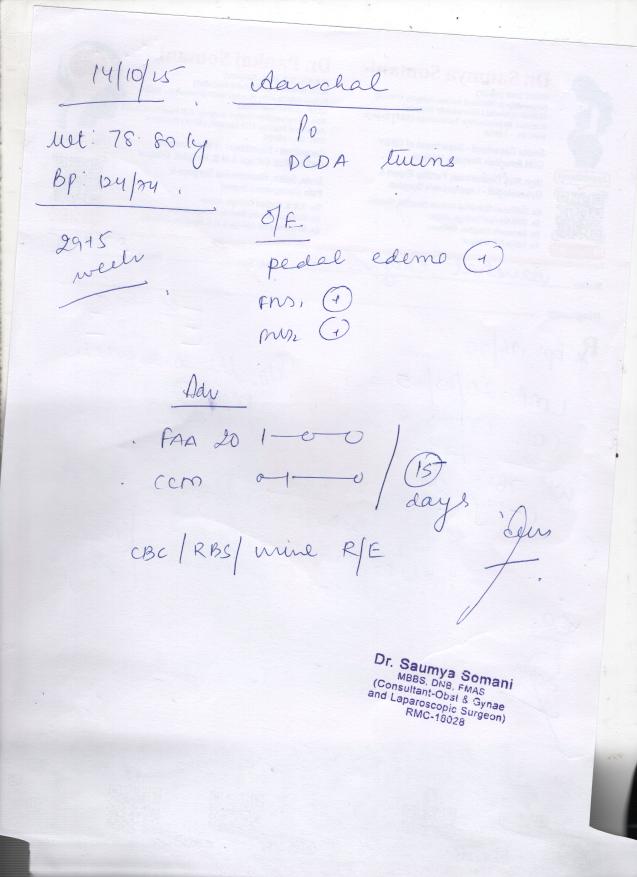 14/10/25
Aanchal
Wt: 78.80 kg
P0
DCDA twins
Bp: 124/74.
O/E
29+5
week
pedal edema (+)
FHS1 (+)
FHS2 (+)
Adv
FAA 20 1—0—0
CCM 0—1—0
15
days
CBC / RBS / urine R/E
Dr. Saumya Somani
MBBS, DNB, FMAS
(Consultant-Obst & Gynae
and Laparoscopic Surgeon)
RMC-18028